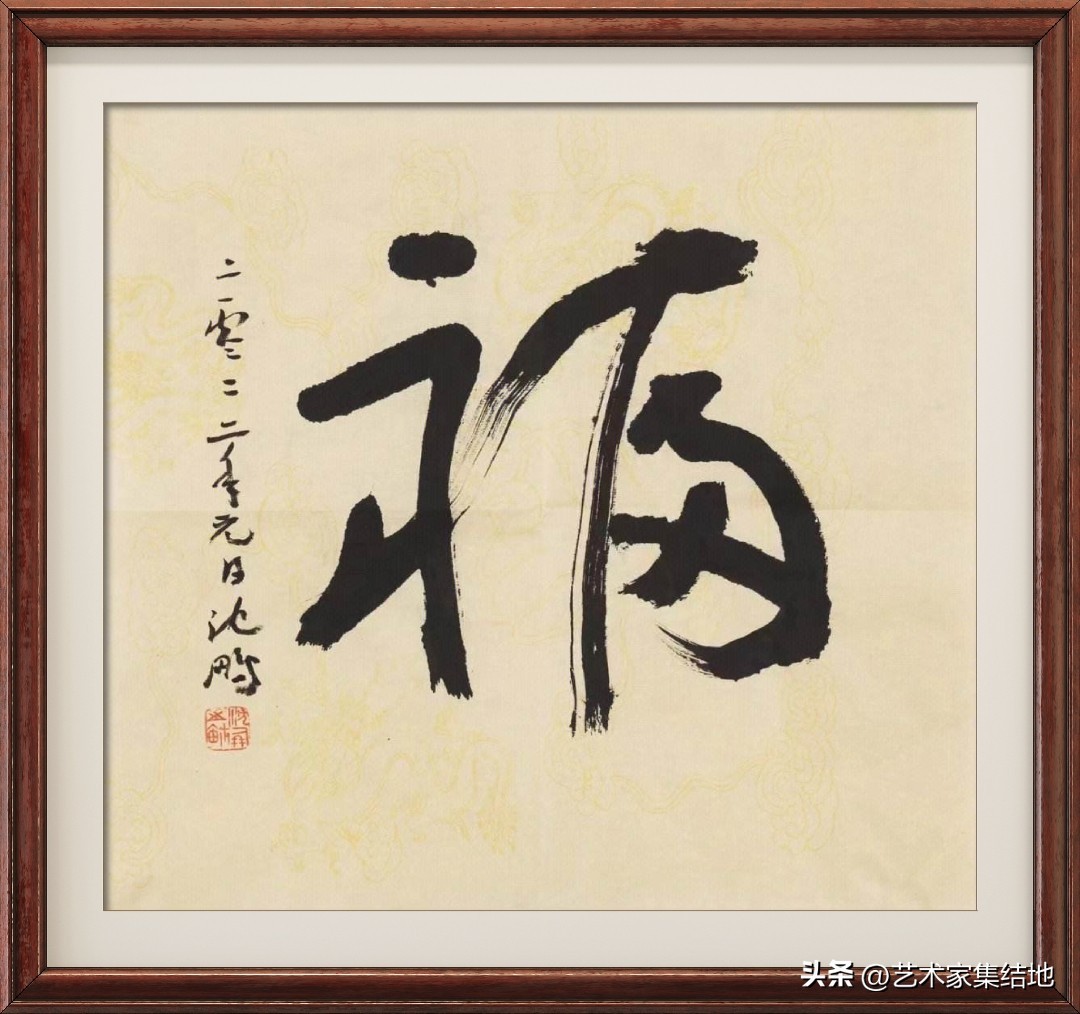 福
二零二二年元日沈鹏
头条 @艺术家集结地